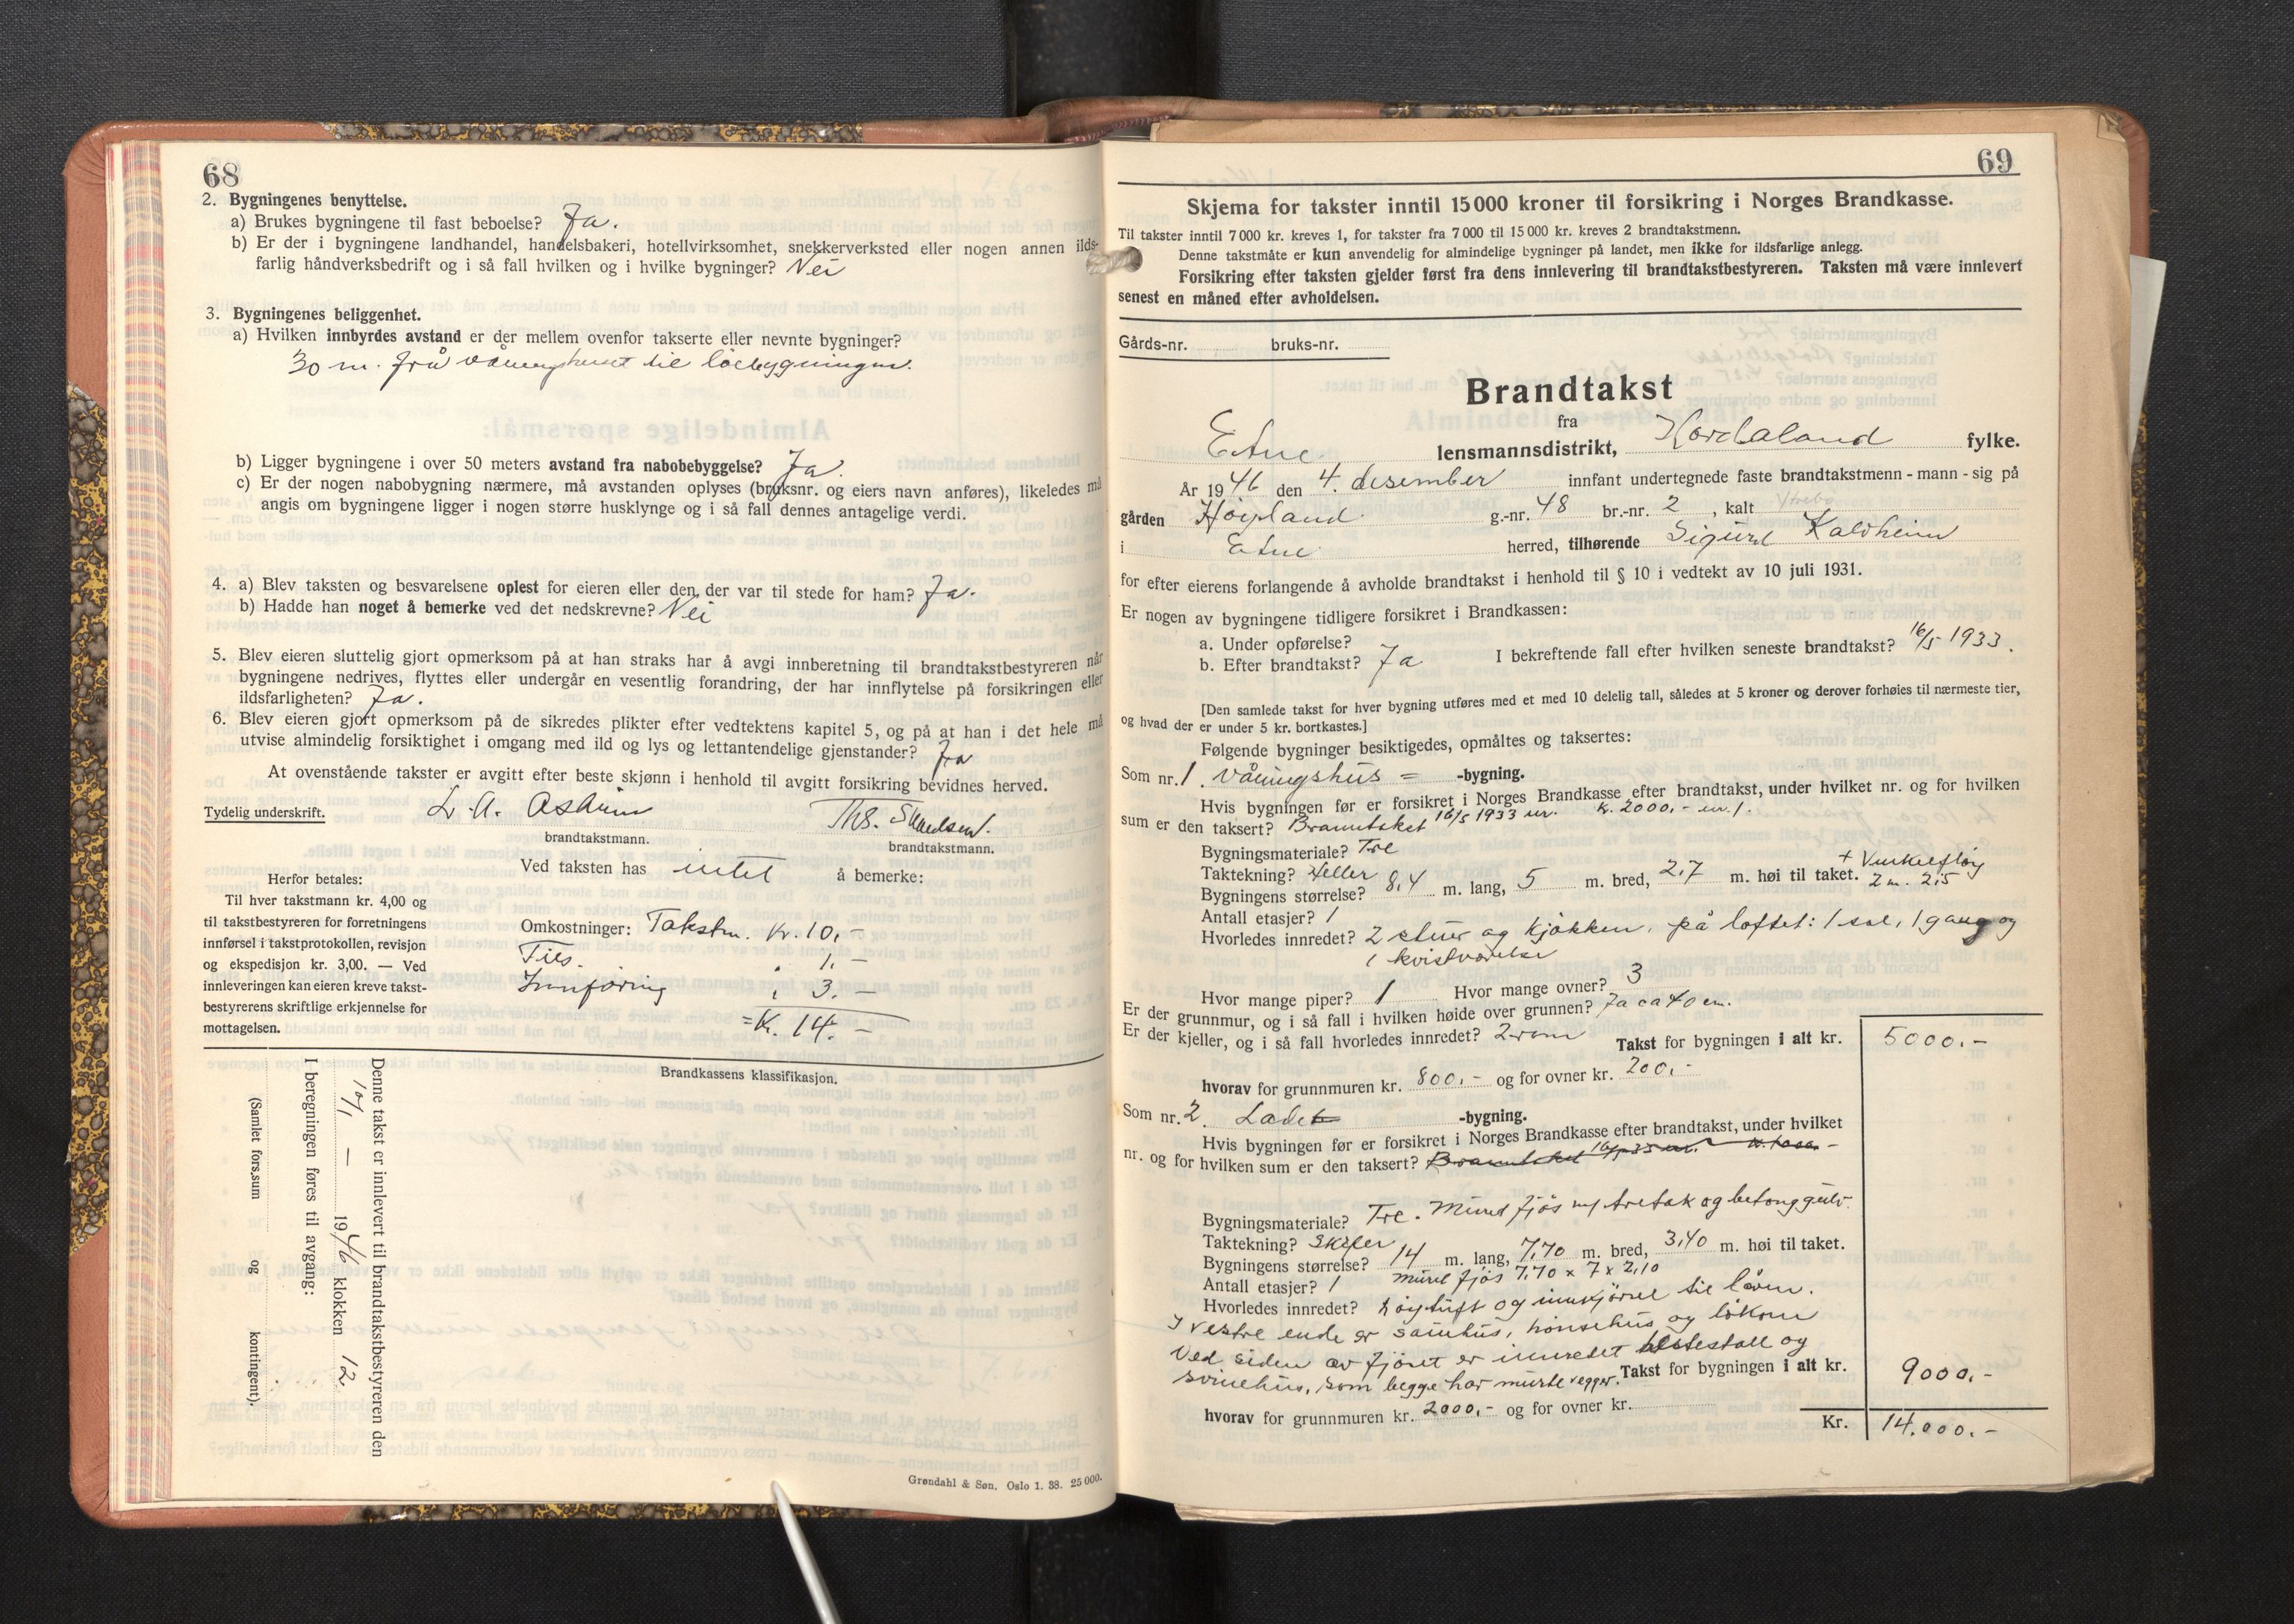 68
2. Bygningenes benyttelse.
a) Brukes bygningene til fast beboelse? Ja.
b) Er der i bygningene landhandel, handelsbakeri, hotellvirksomhet, snekkerverksted eller nogen annen ilds-
farlig håndverksbedrift og i så fall hvilken og i hvilke bygninger? Nei
3. Bygningenes beliggenhet.
a) Hvilken innbyrdes avstand er der mellem ovenfor takserte eller nevnte bygninger?
30 m. frå våningshuset til löebygningen.
b) Ligger bygningene i over 50 meters avstand fra nabobebyggelse? Ja.
c) Er der nogen nabobygning nærmere, må avstanden oplyses (bruksnr. og eiers navn anføres), likeledes må
angis om bygningene ligger i nogen større husklynge og i så fall dennes antagelige verdi.
4. a) Blev taksten og besvarelsene oplest for eieren eller den, der var til stede for ham? Ja.
b) Hadde han noget å bemerke ved det nedskrevne? Nei
5. Blev eieren sluttelig gjort opmerksom på at han straks har å avgi innberetning til brandtakstbestyreren når
bygningene nedrives, flyttes eller undergår en vesentlig forandring, der har innflytelse på forsikringen eller
ildsfarligheten? Ja.
6. Blev eieren gjort opmerksom på de sikredes plikter efter vedtektens kapitel 5, og på at han i det hele må
utvise almindelig forsiktighet i omgang med ild og lys og lettantendelige gjenstander? Ja
At ovenstående takster er avgitt efter beste skjønn i henhold til avgitt forsikring bevidnes herved.
Tydelig underskrift.
brandtakstmann.
brandtakstmann.
Ved taksten has intet å bemerke:
Herfor betales:
Til hver takstmann kr. 4,00 og
til takstbestyreren for forretningens
innførsel i takstprotokollen, revisjon
og ekspedisjon kr. 3,00. — Ved
innleveringen kan eieren kreve takst-
bestyrerens skriftlige erkjennelse for
mottagelsen.
Omkostninger: Takstm. kr. 10,-
1.-
Innføring 3.-
= K. 14.-
Brandkassens klassifikasjon.
Denne takst er innlevert til brandtakstbestyreren den
10/1 — 1946 klokken 12
I beregningen føres til avgang:
(Samlet fors.sum og kontingent).
Grøndahl & Søn. Oslo 1. 38. 25 000.
69
Skjema for takster inntil 15 000 kroner til forsikring i Norges Brandkasse.
Til takster inntil 7 000 kr. kreves 1, for takster fra 7 000 til 15 000 kr. kreves 2 brandtakstmenn.
Denne takstmåte er kun anvendelig for almindelige bygninger på landet, men ikke for ildsfarlige anlegg.
Forsikring efter taksten gjelder først fra dens innlevering til brandtakstbestyreren. Taksten må være innlevert
senest en måned efter avholdelsen.
Gårds-nr. bruks-nr.
Brandtakst
fra
Etne lensmannsdistrikt, Hordaland fylke.
År 1946 den 4. desember innfant undertegnede faste brandtakstmenn - mann - sig på
gården Høyland g.-nr. 48 br.-nr. 2, kalt Ytrebø
i Etne herred, tilhørende Sigurd Kaldheim
for efter eierens forlangende å avholde brandtakst i henhold til § 10 i vedtekt av 10 juli 1931.
Er nogen av bygningene tidligere forsikret i Brandkassen:
a. Under opførelse?
b. Efter brandtakst? Ja I bekreftende fall efter hvilken seneste brandtakst? 16/5 1933.
[Den samlede takst for hver bygning utføres med et med 10 delelig tall, således at 5 kroner og derover forhøies til nærmeste tier,
og hvad der er under 5 kr. bortkastes.]
Følgende bygninger besiktigedes, opmåltes og taksertes:
Som nr. 1. våningshus = -bygning.
Hvis bygningen før er forsikret i Norges Brandkasse efter brandtakst, under hvilket nr. og for hvilken
sum er den taksert? Branntakst 16/5 1933 nr. K. 2000,-
Bygningsmateriale? Tre
Taktekning? Heller
Bygningens størrelse? 8,4 m. lang, 5 m. bred, 2,7 m. høi til taket. + Vinkelfløy 2 m. 2,5
Antall etasjer? 1
Hvorledes innredet? 2 stuer og kjøkken. på loftet: 1 sal, 1 gang og
1 kvistværelse
Hvor mange piper? 1 Hvor mange ovner? 3
Er der grunnmur, og i så fall i hvilken høide over grunnen? Ja ca 40 cm.
Er der kjeller, og i så fall hvorledes innredet? 2 rom Takst for bygningen i alt kr. 5000.-
hvorav for grunnmuren kr. 800.- og for ovner kr. 200.-
Som nr. 2. Lade -bygning.
Hvis bygningen før er forsikret i Norges Brandkasse efter brandtakst, under hvilket
nr. og for hvilken sum er den taksert? Branntakst 16/5-33
Bygningsmateriale? Tre. Muret fjøs m/ tretak og betonggulv.
Taktekning? Skifer
Bygningens størrelse? 14 m. lang, 7,70 m. bred, 3,40 m. høi til taket.
Antall etasjer? 1 muret fjøs 7,70 x 7 x 2,10
Hvorledes innredet? høytuft og innkjørsel til låven.
I vestre ende er sauehus, hönsehus og
Ved siden av fjöset er innredet hestestall og
svinehus, som begge har murte vegger. Takst for bygningen i alt kr. 9000.-
hvorav for grunnmuren kr. 2000.- og for ovner kr.
Kr. 14.000.-